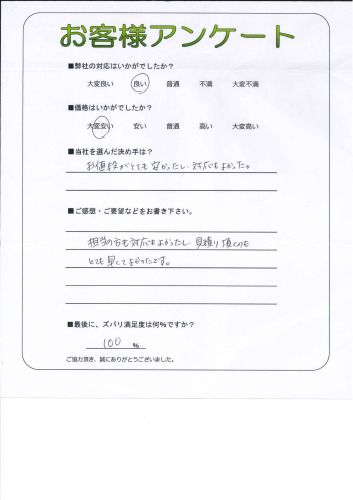 お客様アンケート
■弊社の対応はいかがでしたか？
大変良い 良い 普通 不満 大変不満
■価格はいかがでしたか？
大変安い 安い 普通 高い 大変高い
■当社を選んだ決め手は？
お値段がとても安かったし、対応もよかった。
■ご感想・ご要望などをお書き下さい。
担当の方も対応もよかったし、見積り頂くのも
とても早くてよかったです。
■最後に、ズバリ満足度は何％ですか？
100 %
ご協力頂き、誠にありがとうございました。